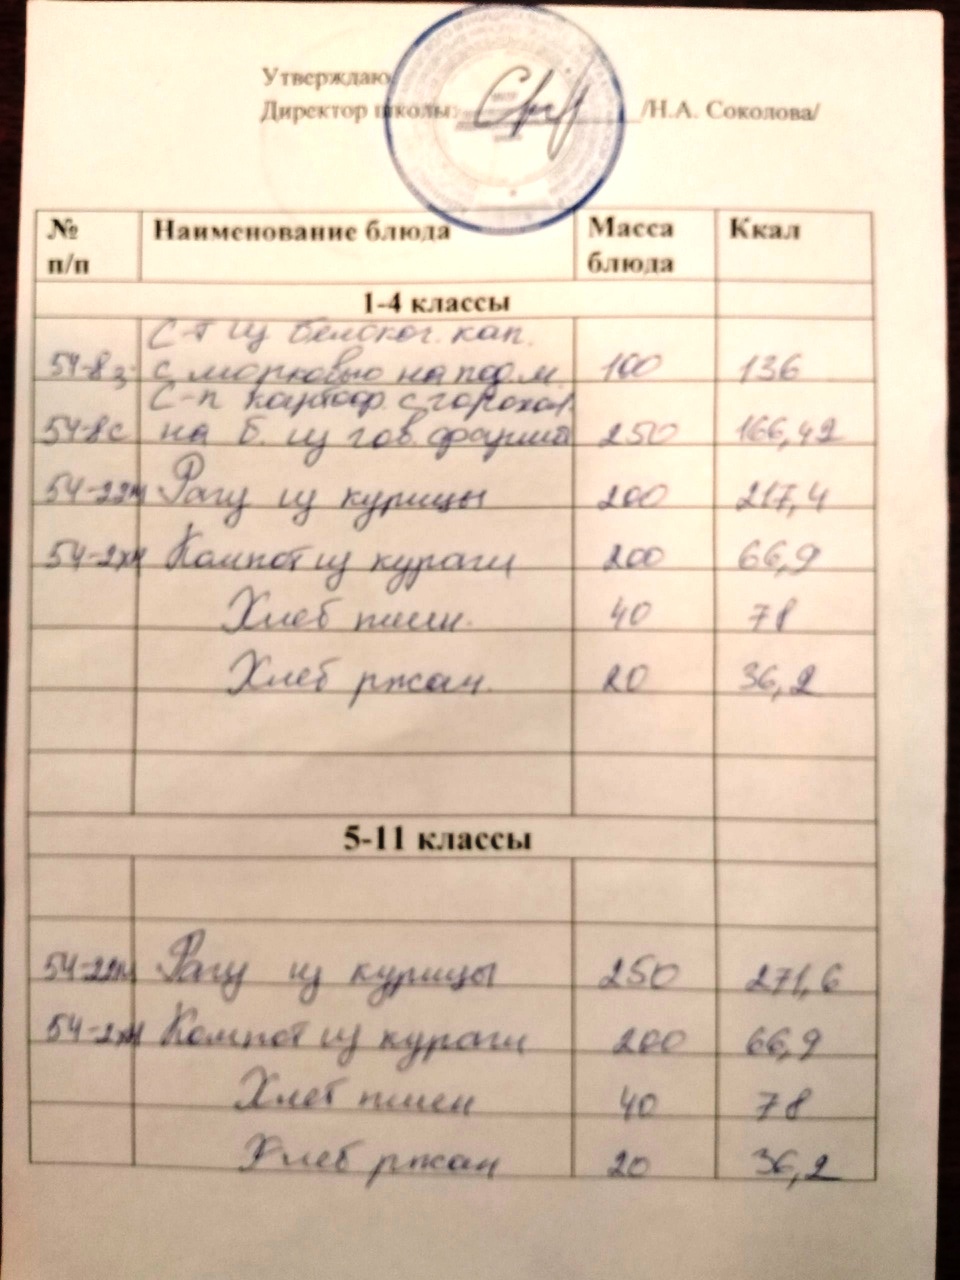 Утверждаю
Директор школы: /Н.А. Соколова/
№ п/п Наименование блюда Масса блюда Ккал
1-4 классы
С-т из белокоч. кап.
54-8з с морковью на под.м. 100 136
С-п картоф. с горохом
54-8с на б. из гов. фарша 250 166,42
54-22м Рагу из курицы 200 217,4
54-2хн Компот из кураги 200 66,9
Хлеб пшен. 40 78
Хлеб ржан. 20 36,2
5-11 классы
54-22м Рагу из курицы 250 271,6
54-2хн Компот из кураги 200 66,9
Хлеб пшен 40 78
Хлеб ржан 20 36,2